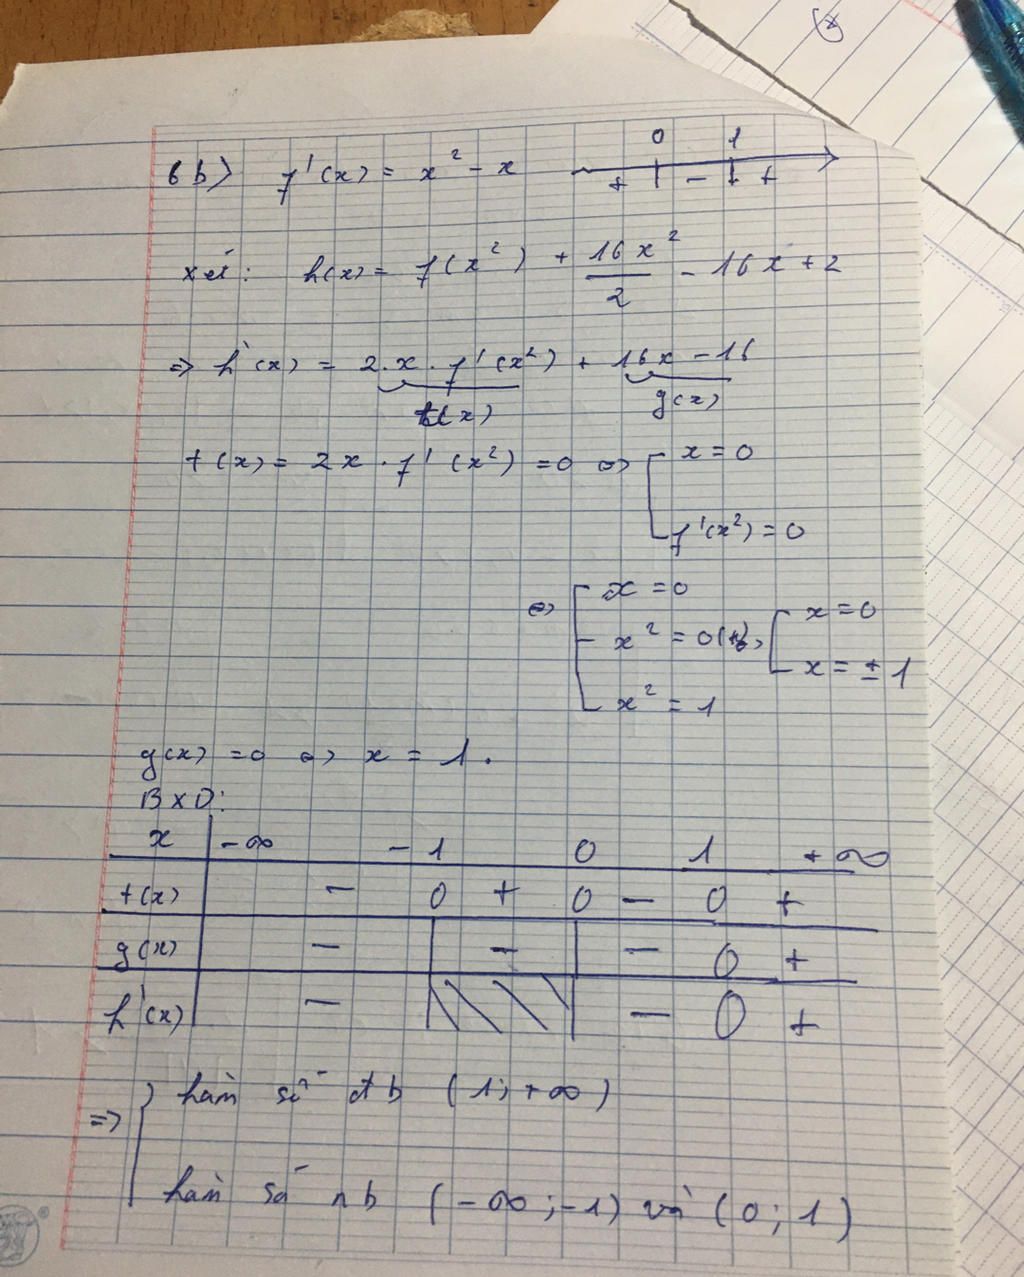 6b) f'(x) = x² - x
0 1
+ - +
xét: h(x) = f(x²) + 16x²/2 - 16x + 2
=> h'(x) = 2.x.f'(x²) + 16x - 16
t(x) g(x)
t(x) = 2x.f'(x²) = 0 ⇔ [ x = 0
f'(x²) = 0
⇔ [ x = 0
x² = 0 ⇔ [ x = 0
x = ±1
x² = 1
g(x) = 0 ⇔ x = 1.
BXD:
x -∞ -1 0 1 +∞
t(x) - 0 + 0 - 0 +
g(x) - - - 0 +
h'(x) - - 0 +
=> { hàm số đb (1; +∞)
hàm số nb (-∞; -1) và (0; 1)